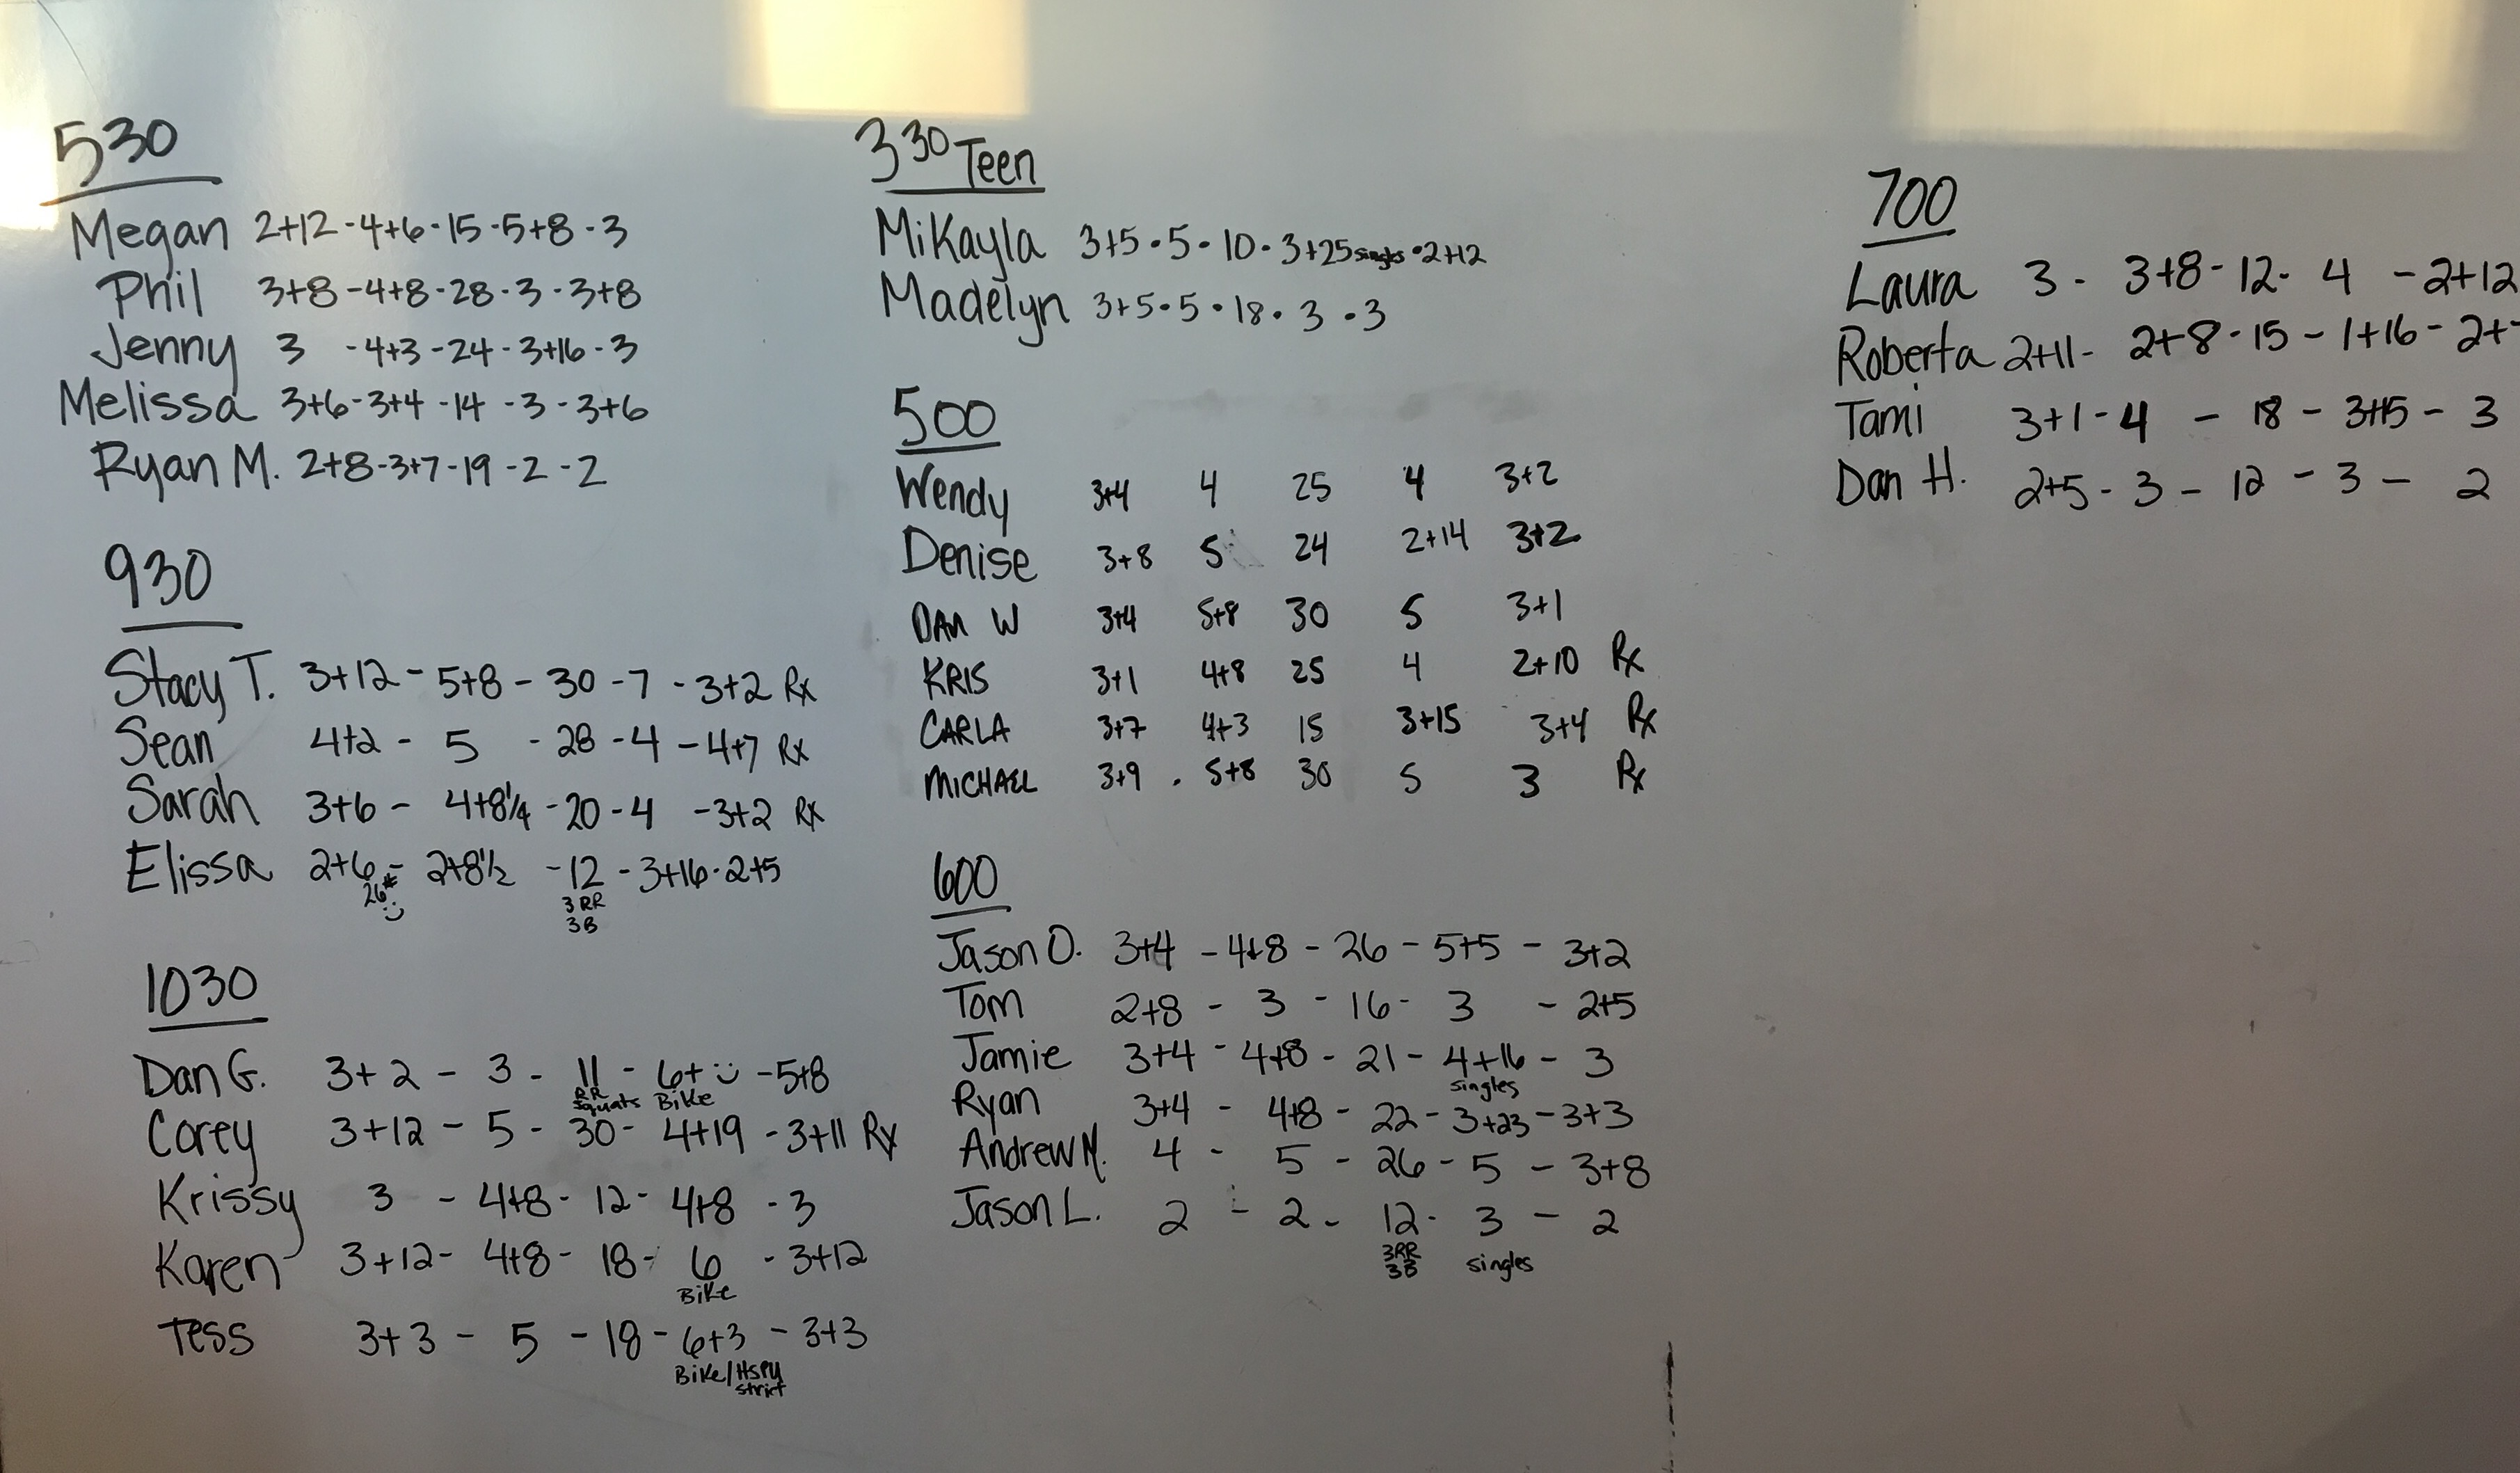 530
Megan 2+12 - 4+6 - 15 - 5+8 - 3
Phil 3+8 - 4+8 - 28 - 3 - 3+8
Jenny 3 - 4+3 - 24 - 3+16 - 3
Melissa 3+6 - 3+4 - 14 - 3 - 3+6
Ryan M. 2+8 - 3+7 - 19 - 2 - 2
930
Stacy T. 3+12 - 5+8 - 30 - 7 - 3+2 Rx
Sean 4+2 - 5 - 28 - 4 - 4+7 Rx
Sarah 3+6 - 4+8 1/4 - 20 - 4 - 3+2 Rx
Elissa 2+6 - 2+8 1/2 - 12 - 3+16 - 2+5
26# :) 3 RR
3B
1030
Dan G. 3+2 - 3 - 11 - 6+ :) - 5+8
RR squats Bike
Corey 3+12 - 5 - 30 - 4+19 - 3+11 Rx
Krissy 3 - 4+8 - 12 - 4+8 - 3
Karen 3+12 - 4+8 - 18 - 6 - 3+12
Bike
Tess 3+3 - 5 - 18 - 6+3 - 3+3
Bike/HSPU
strict
330 Teen
MiKayla 3+5 • 5 • 10 • 3+25 singles • 2+12
Madelyn 3+5 • 5 • 18 • 3 • 3
500
Wendy 3+4 4 25 4 3+2
Denise 3+8 5 24 2+14 3+2
DAN W 3+4 5+8 30 5 3+1
KRIS 3+1 4+8 25 4 2+10 Rx
CARLA 3+7 4+3 15 3+15 3+4 Rx
MICHAEL 3+9 . 5+8 30 5 3 Rx
600
Jason O. 3+4 - 4+8 - 26 - 5+5 - 3+2
Tom 2+8 - 3 - 16 - 3 - 2+5
Jamie 3+4 - 4+8 - 21 - 4+16 - 3
singles
Ryan 3+4 - 4+8 - 22 - 3+23 - 3+3
Andrew M. 4 - 5 - 26 - 5 - 3+8
Jason L. 2 - 2 - 12 - 3 - 2
3RR singles
3B
700
Laura 3 - 3+8 - 12 - 4 - 2+12
Roberta 2+11 - 2+8 - 15 - 1+16 - 2+
Tami 3+1 - 4 - 18 - 3+15 - 3
Dan H. 2+5 - 3 - 12 - 3 - 2